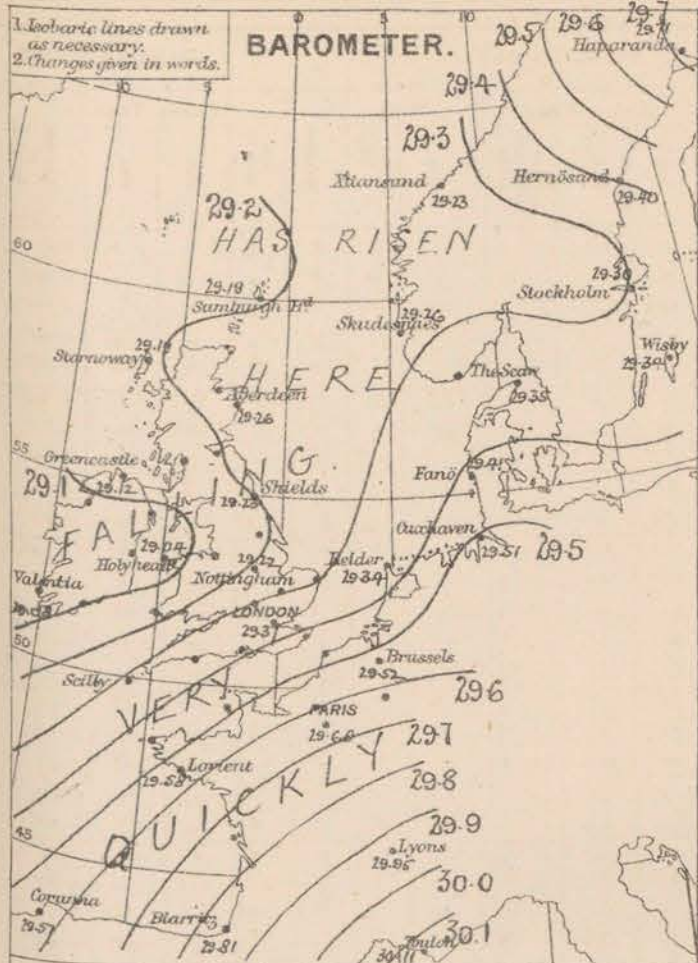 1. Isobaric lines drawn
as necessary.
2. Changes given in words.
BAROMETER.
10
5
0
5
10
29.5
29.6
29.7
Haparanda
29.4
29.3
Xtiansund
29.23
Hernösand
29.40
29.2
HAS RISEN
60
29.18
Sumburgh Hd
29.30
Stockholm
Skudesnaes
29.26
Stornoway
Wisby
29.39
HERE
The Scaw
29.35
Aberdeen
29.26
55
Greencastle
29.12
29.1
FALLING
Shields
29.23
Fanö
29.41
Cuxhaven
29.51
29.5
29.04
Holyhead
29.22
Nottingham
Helder
29.34
Valentia
LONDON
29.3
50
Brussels
29.52
Scilly
VERY
29.6
PARIS
29.7
Lorient
29.58
29.8
QUICKLY
29.9
45
Lyons
29.95
30.0
Corunna
29.57
Biarritz
29.81
30.1
Toulon
30.11